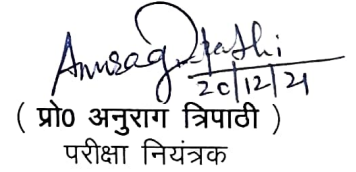 Anurag Tripathi
20/12/21
( प्रो0 अनुराग त्रिपाठी )
परीक्षा नियंत्रक